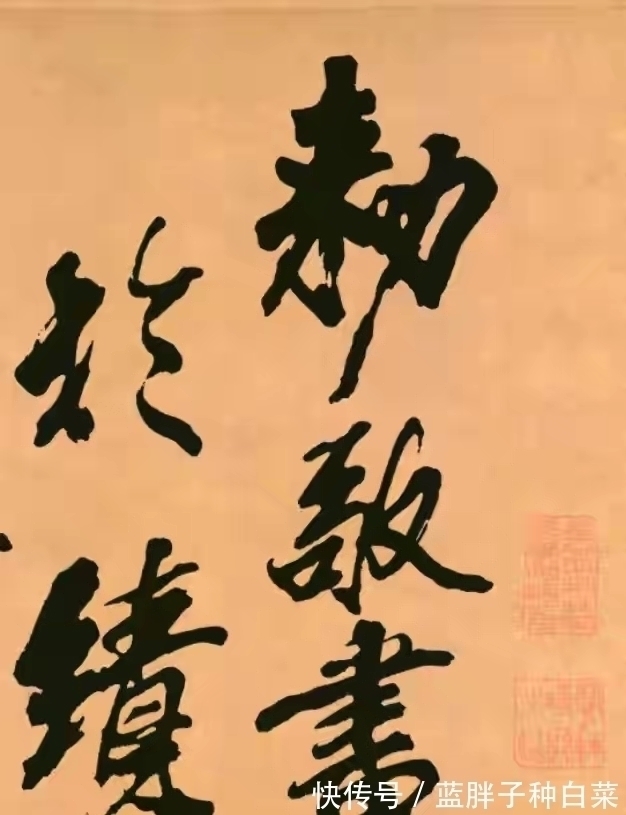 勅敬書
於
續
快传号 / 蓝胖子种白菜